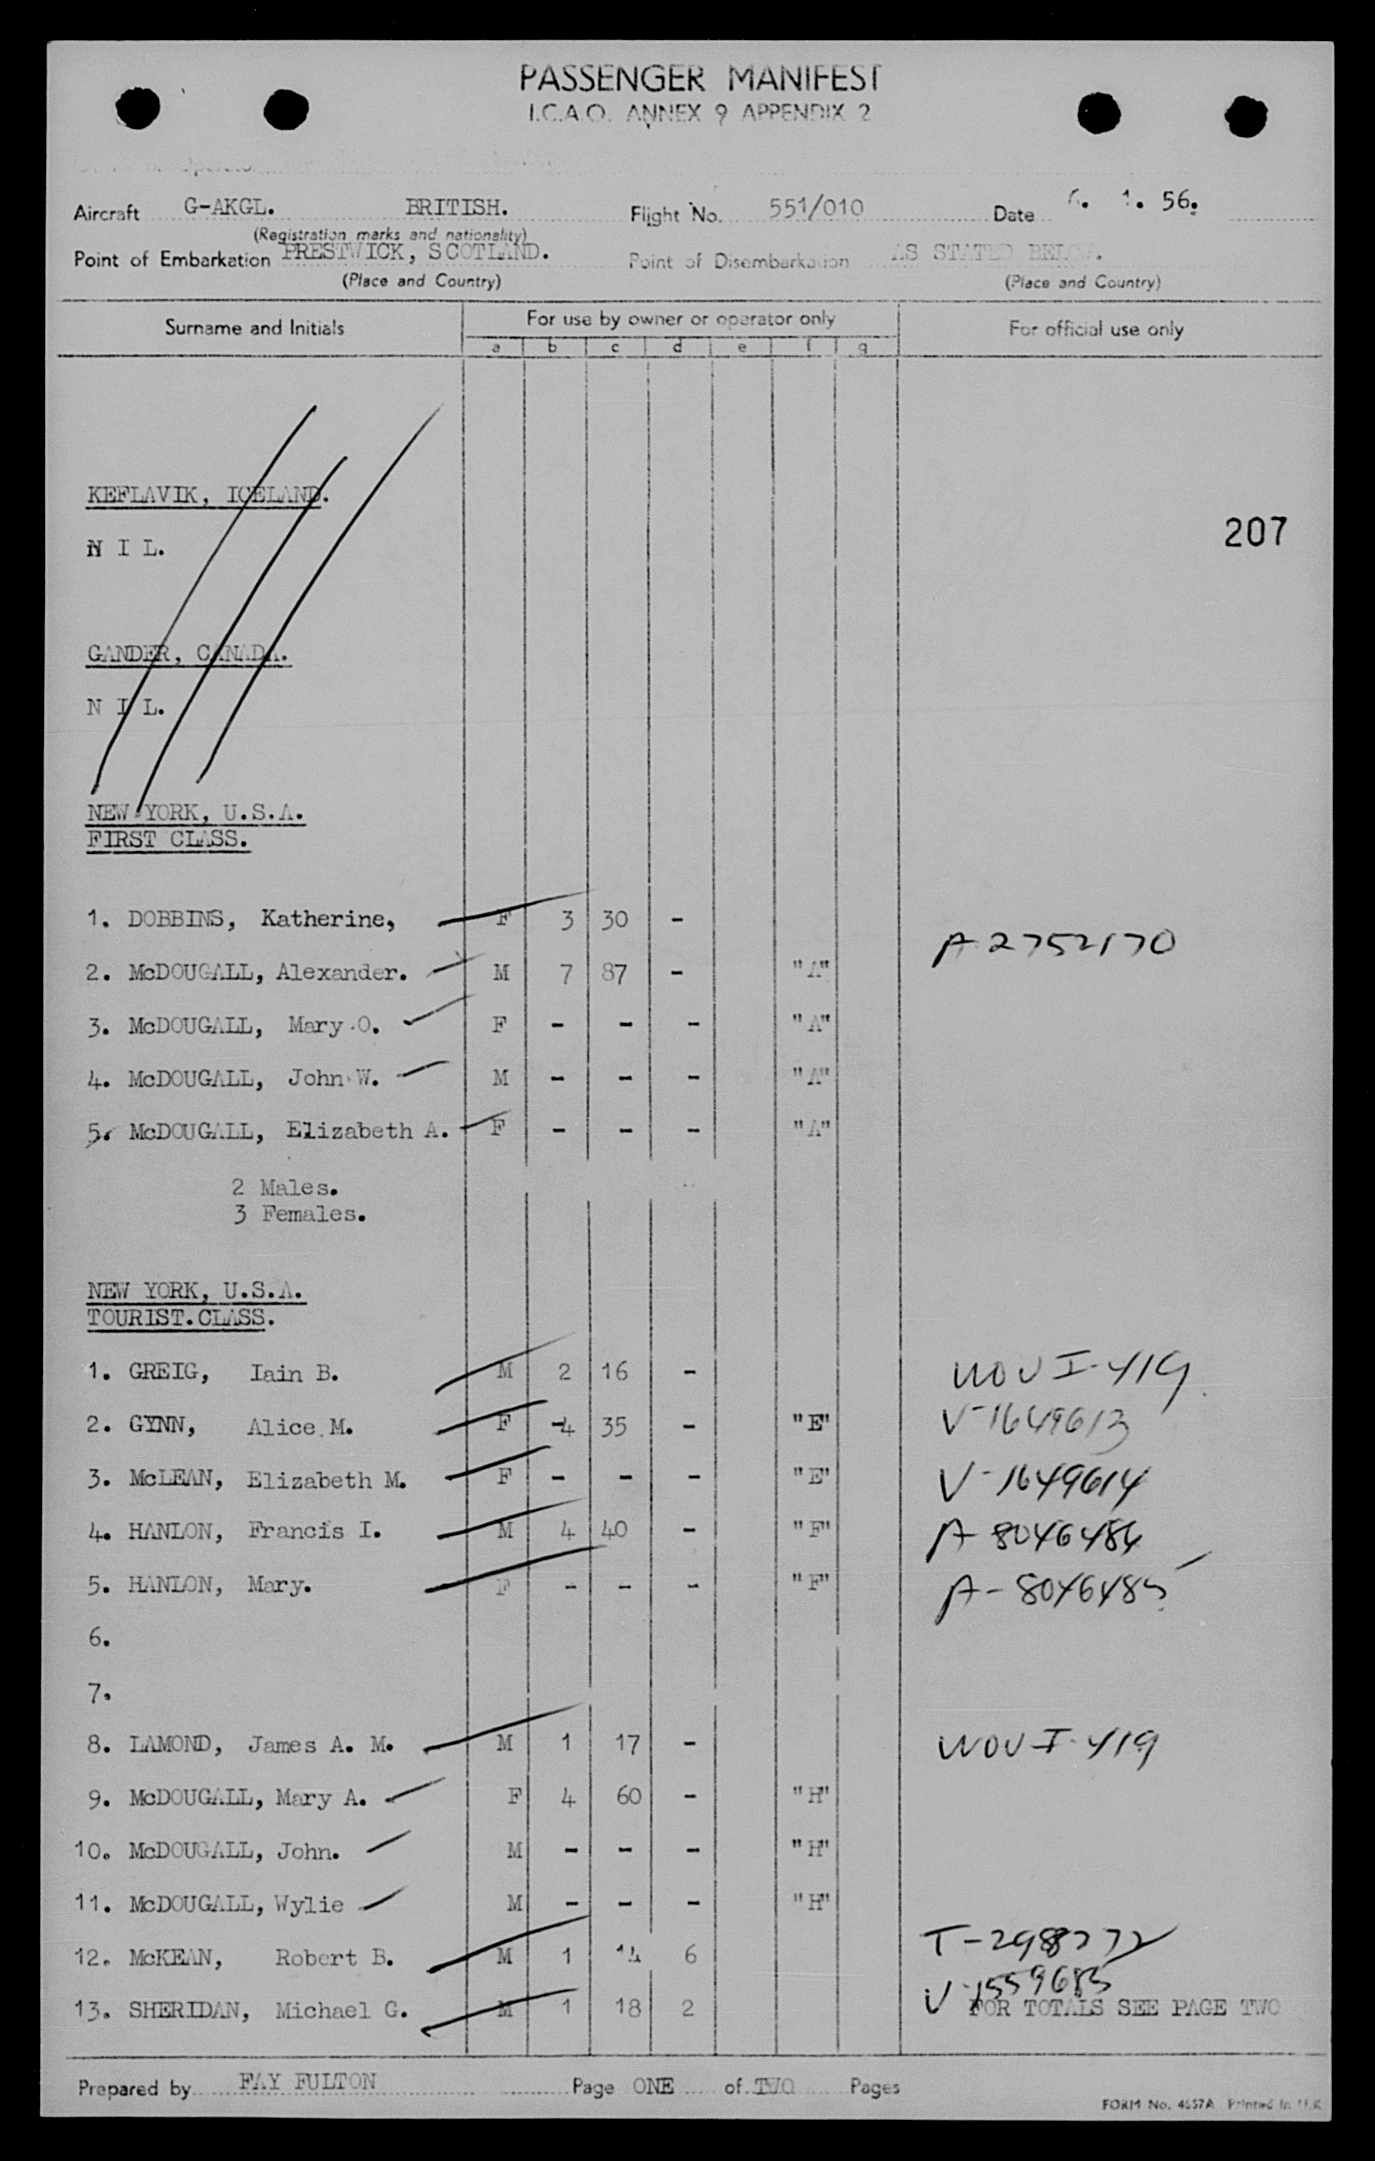 PASSENGER MANIFEST
I.C.A.O. ANNEX 9 APPENDIX 2
Aircraft G-AKGL. BRITISH. Flight No. 551/010 Date 6. 1. 56.
(Registration marks and nationality)
Point of Embarkation PRESTWICK, SCOTLAND. Point of Disembarkation AS STATED BELOW.
(Place and Country) (Place and Country)
Surname and Initials For use by owner or operator only For official use only
a b c d e f g
KEFLAVIK, ICELAND.
207
N I L.
GANDER, CANADA.
N I L.
NEW YORK, U.S.A.
FIRST CLASS.
1. DOBBINS, Katherine, F 3 30 -
A-2752170
2. McDOUGALL, Alexander. M 7 87 - "A"
3. McDOUGALL, Mary O. F - - - "A"
4. McDOUGALL, John W. M - - - "A"
5. McDOUGALL, Elizabeth A. F - - - "A"
2 Males.
3 Females.
NEW YORK, U.S.A.
TOURIST.CLASS.
1. GREIG, Iain B. M 2 16 - NOV I-419
2. GYNN, Alice M. F -4 35 - "E" V-1649613
3. McLEAN, Elizabeth M. F - - - "E" V-1649614
4. HANLON, Francis I. M 4 40 - "F" A-8046484
5. HANLON, Mary. F - - - "F" A-8046485
6.
7.
8. LAMOND, James A. M. M 1 17 - NOV I-419
9. McDOUGALL, Mary A. F 4 60 - "H"
10. McDOUGALL, John. M - - - "H"
11. McDOUGALL, Wylie M - - - "H"
12. McKEAN, Robert B. M 1 14 6 T-2988772
V-1559683
13. SHERIDAN, Michael G. M 1 18 2 FOR TOTALS SEE PAGE TWO
Prepared by FAY FULTON Page ONE of TWO Pages
FORM No. 4657A Printed in U.K.